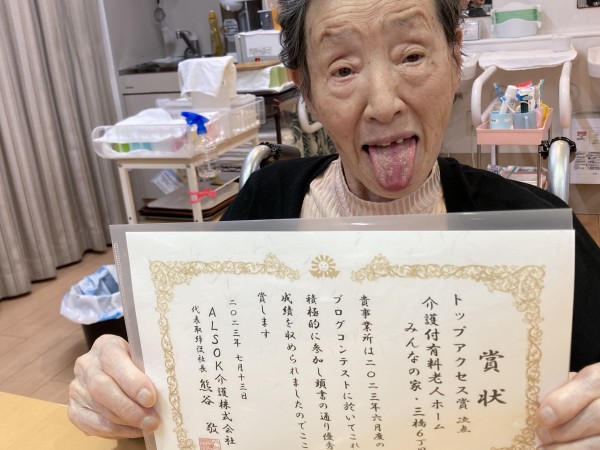 賞状
トップアクセス賞 次点
介護付有料老人ホーム
みんなの家・三橋6丁
貴事業所は二〇二三年六月度の
ブログコンテストに於いてこれ
積極的に参加し頭書の通り優秀
成績を収められましたのでここ
賞します
二〇二三年 七月十三日
ALSOK介護株式会社
代表取締役社長 熊谷 敬